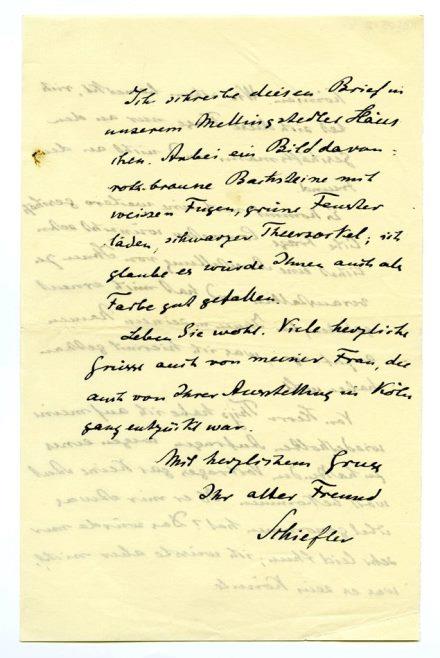 Ich schreibe diesen Brief in
unserem Mellingstedter Häus
chen. Anbei ein Bild davon:
rot-braune Backsteine mit
weissen Fugen, grüne Fenster
läden, schwarzer Theersockel; ich
glaube es würde Ihnen auch als
Farbe gut gefallen.
Leben Sie wohl. Viele herzliche
Grüsse auch von meiner Frau, die
auch von Ihrer Ausstellung in Köln
ganz entzückt war.
Mit herzlichem Gruss
Ihr alter Freund
Schiefler